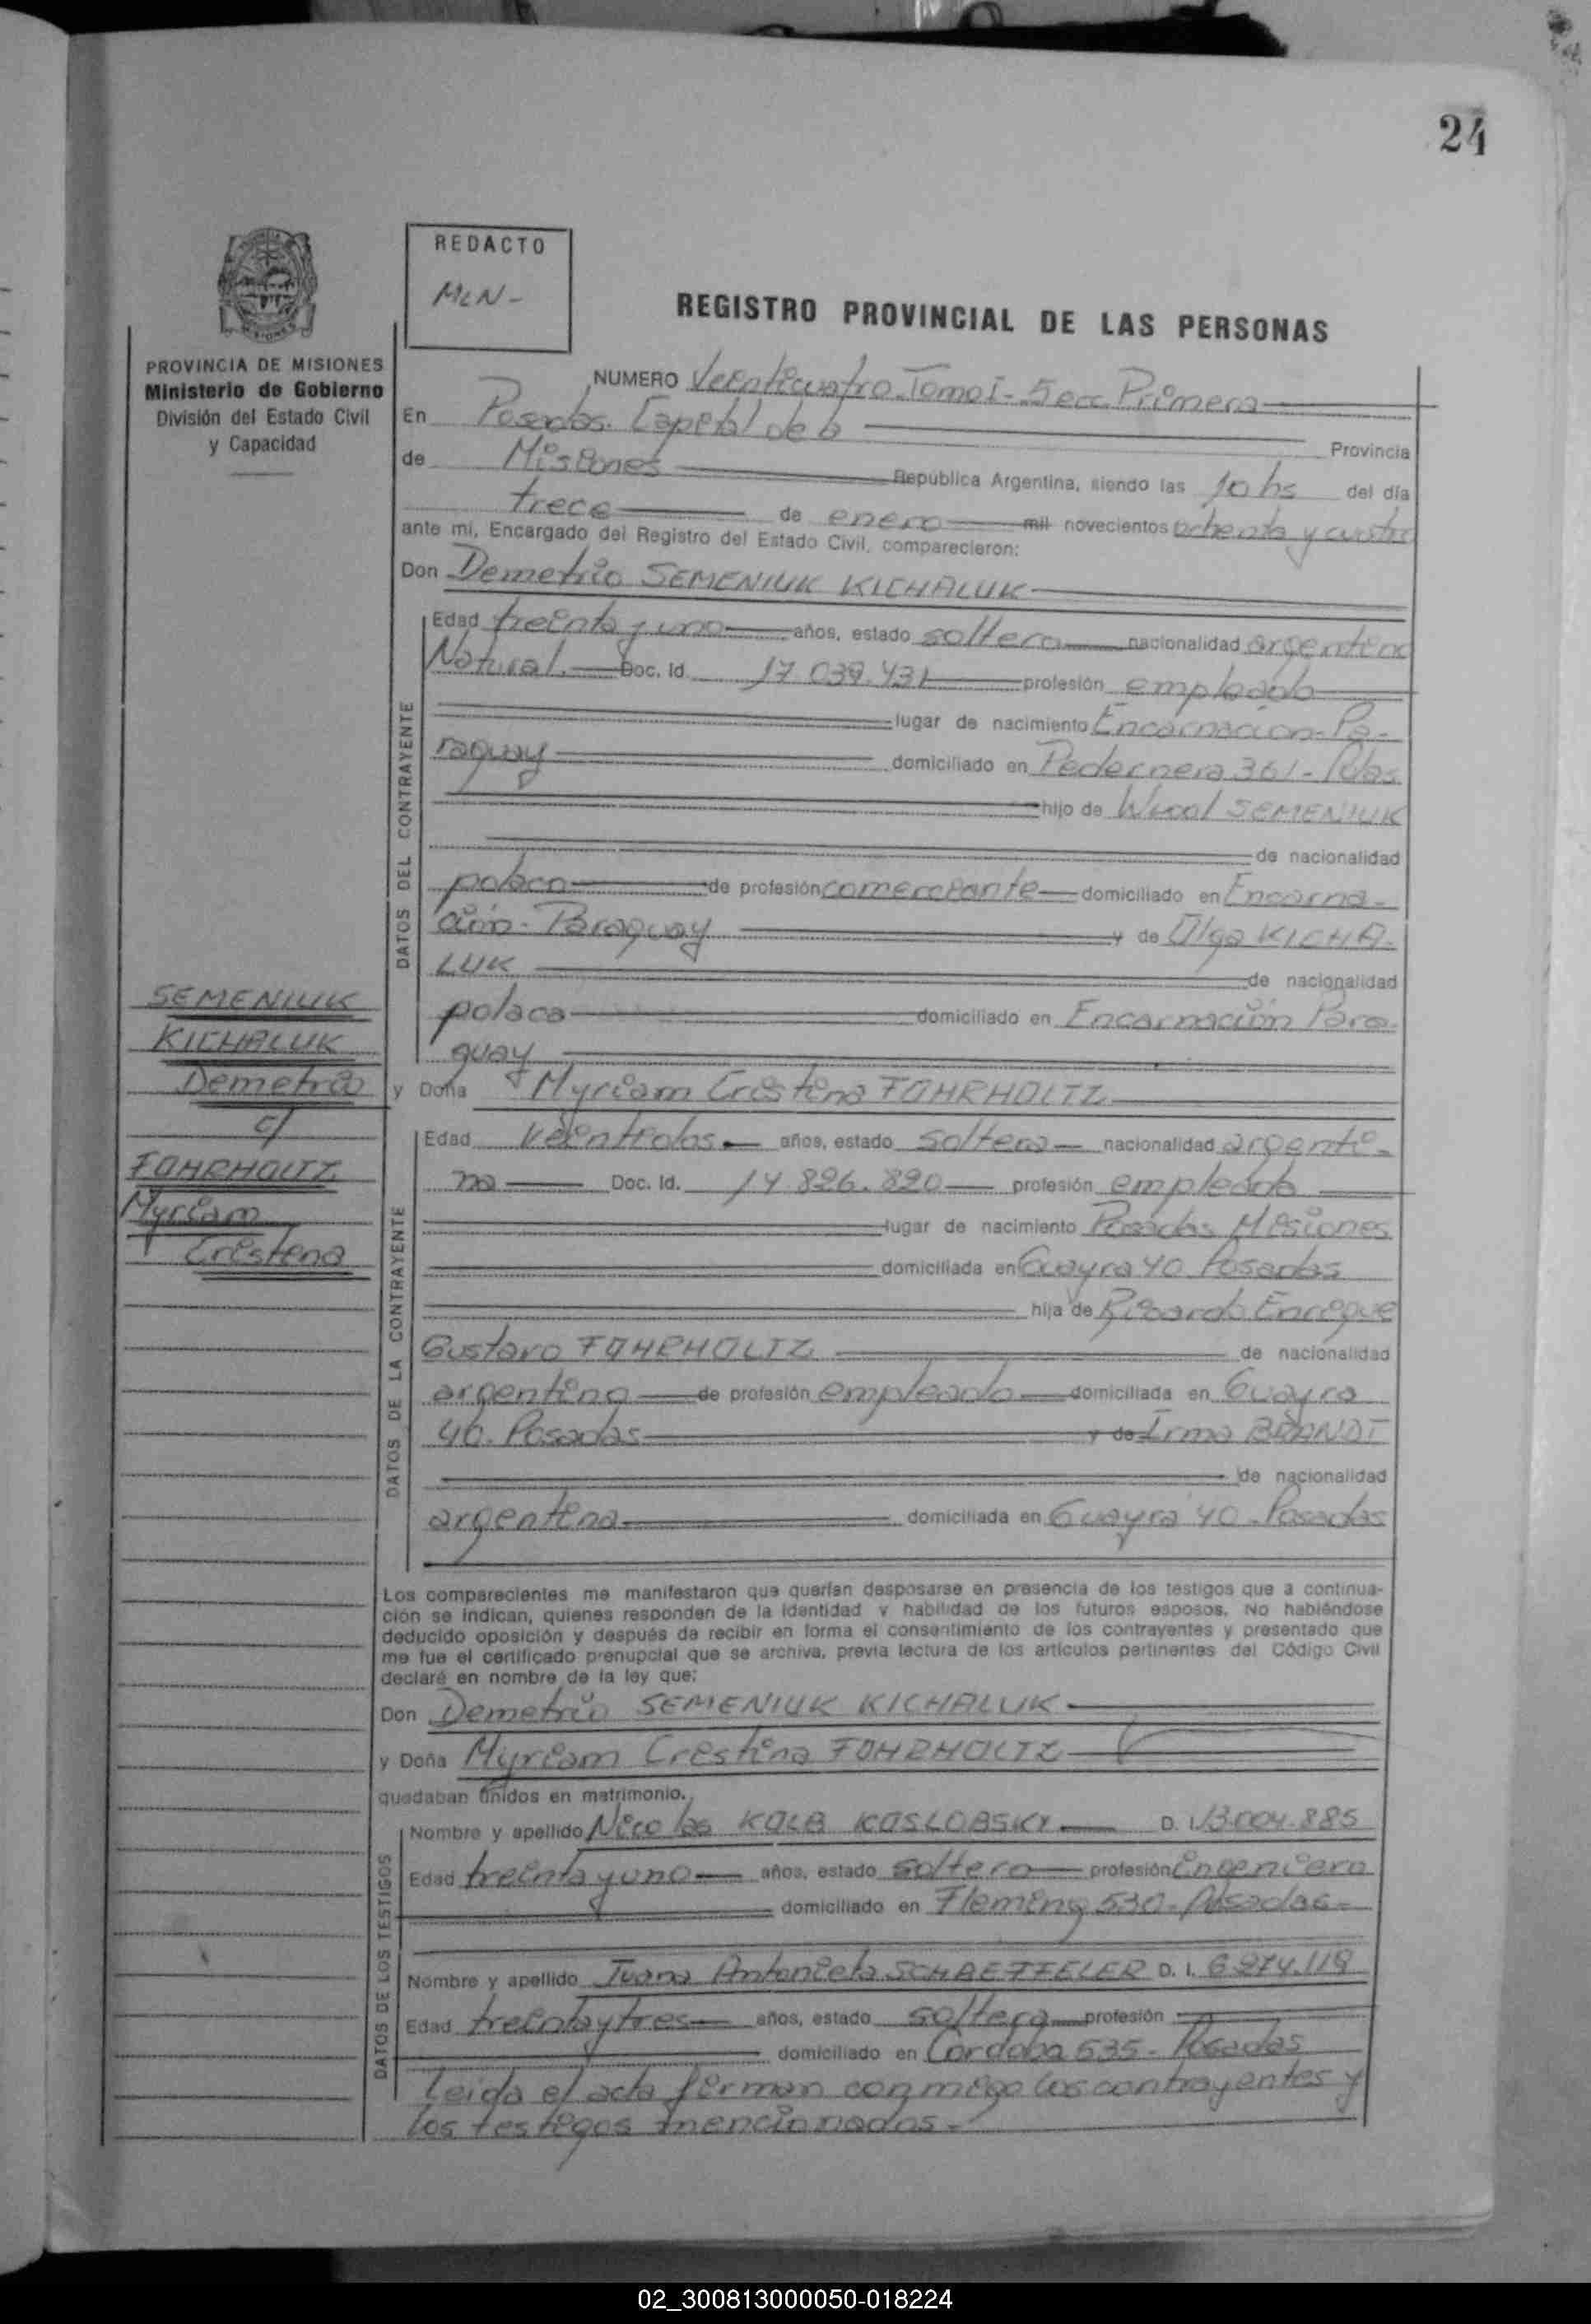 24
REDACTO
MLN-
REGISTRO PROVINCIAL DE LAS PERSONAS
PROVINCIA DE MISIONES
Ministerio de Gobierno
División del Estado Civil
y Capacidad
NUMERO Veinticuatro. Tomo I - Secc. Primera
En Posadas. Capital de la Provincia
de Misiones República Argentina, siendo las 10 hs del día
trece de enero mil novecientos ochenta y cuatro
ante mi, Encargado del Registro del Estado Civil, comparecieron:
Don Demetrio SEMENIUK KICHALUK
DATOS DEL CONTRAYENTE
Edad treinta y uno años, estado soltero nacionalidad argentino
Natural. Doc. Id. 17.039.431 profesión empleado
lugar de nacimiento Encarnación-Pa-
raguay domiciliado en Pedernera 361 - Pdas
hijo de SEMENIUK
de nacionalidad
polaco de profesión comerciante domiciliado en Encarna-
ción - Paraguay y de Olga KICHA-
LUK de nacionalidad
polaca domiciliado en Encarnación Para-
guay
SEMENIUK
KICHALUK
Demetrio
c/
FAHRHOLTZ
Myriam
Cristina
y Doña Myriam Cristina FAHRHOLTZ
DATOS DE LA CONTRAYENTE
Edad veintidos años, estado soltera nacionalidad argenti-
na Doc. Id. 14.826.820 profesión empleada
lugar de nacimiento Posadas Misiones
domiciliada en Guayra 40 Posadas
hija de Ricardo Enrique
Gustavo FAHRHOLTZ de nacionalidad
argentino de profesión empleado domiciliada en Guayra
40. Posadas y de Irma BRANDT
de nacionalidad
argentina domiciliada en Guayra 40 - Posadas
Los comparecientes me manifestaron que querían desposarse en presencia de los testigos que a continua-
ción se indican, quienes responden de la identidad y habilidad de los futuros esposos. No habiéndose
deducido oposición y después de recibir en forma el consentimiento de los contrayentes y presentado que
me fue el certificado prenupcial que se archiva, previa lectura de los artículos pertinentes del Código Civil
declaré en nombre de la ley que:
Don Demetrio SEMENIUK KICHALUK
y Doña Myriam Cristina FAHRHOLTZ
quedaban unidos en matrimonio.
DATOS DE LOS TESTIGOS
Nombre y apellido Nicolas KALB KOSLOBSKY D. I. 13.004.885
Edad treinta y uno años, estado soltero profesión ingeniero
domiciliado en Fleming 530 - Posadas -
Nombre y apellido Juana Antonieta SCHAEFFELER D. I. 6.274.118
Edad treinta y tres años, estado soltera profesión
domiciliado en Cordoba 635 - Posadas
Leida el acta firman conmigo los contrayentes y
los testigos mencionados.-
02_300813000050-018224